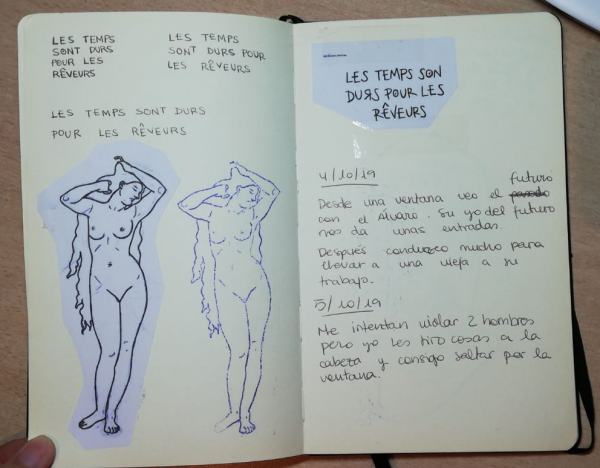 LES TEMPS
SONT DURS
POUR LES
RÊVEURS
LES TEMPS
SONT DURS POUR
LES RÊVEURS
LES TEMPS SONT DURS
POUR LES RÊVEURS
LES TEMPS SON
DURS POUR LES
RÊVEURS
4/10/19
futuro
Desde una ventana veo el pasado
con el Álvaro. Su yo del futuro
nos da unas entradas.
Después conduzco mucho para
llevar a una vieja a su
trabajo.
5/10/19
Me intentan violar 2 hombres
pero yo les tiro cosas a la
cabeza y consigo saltar por la
ventana.